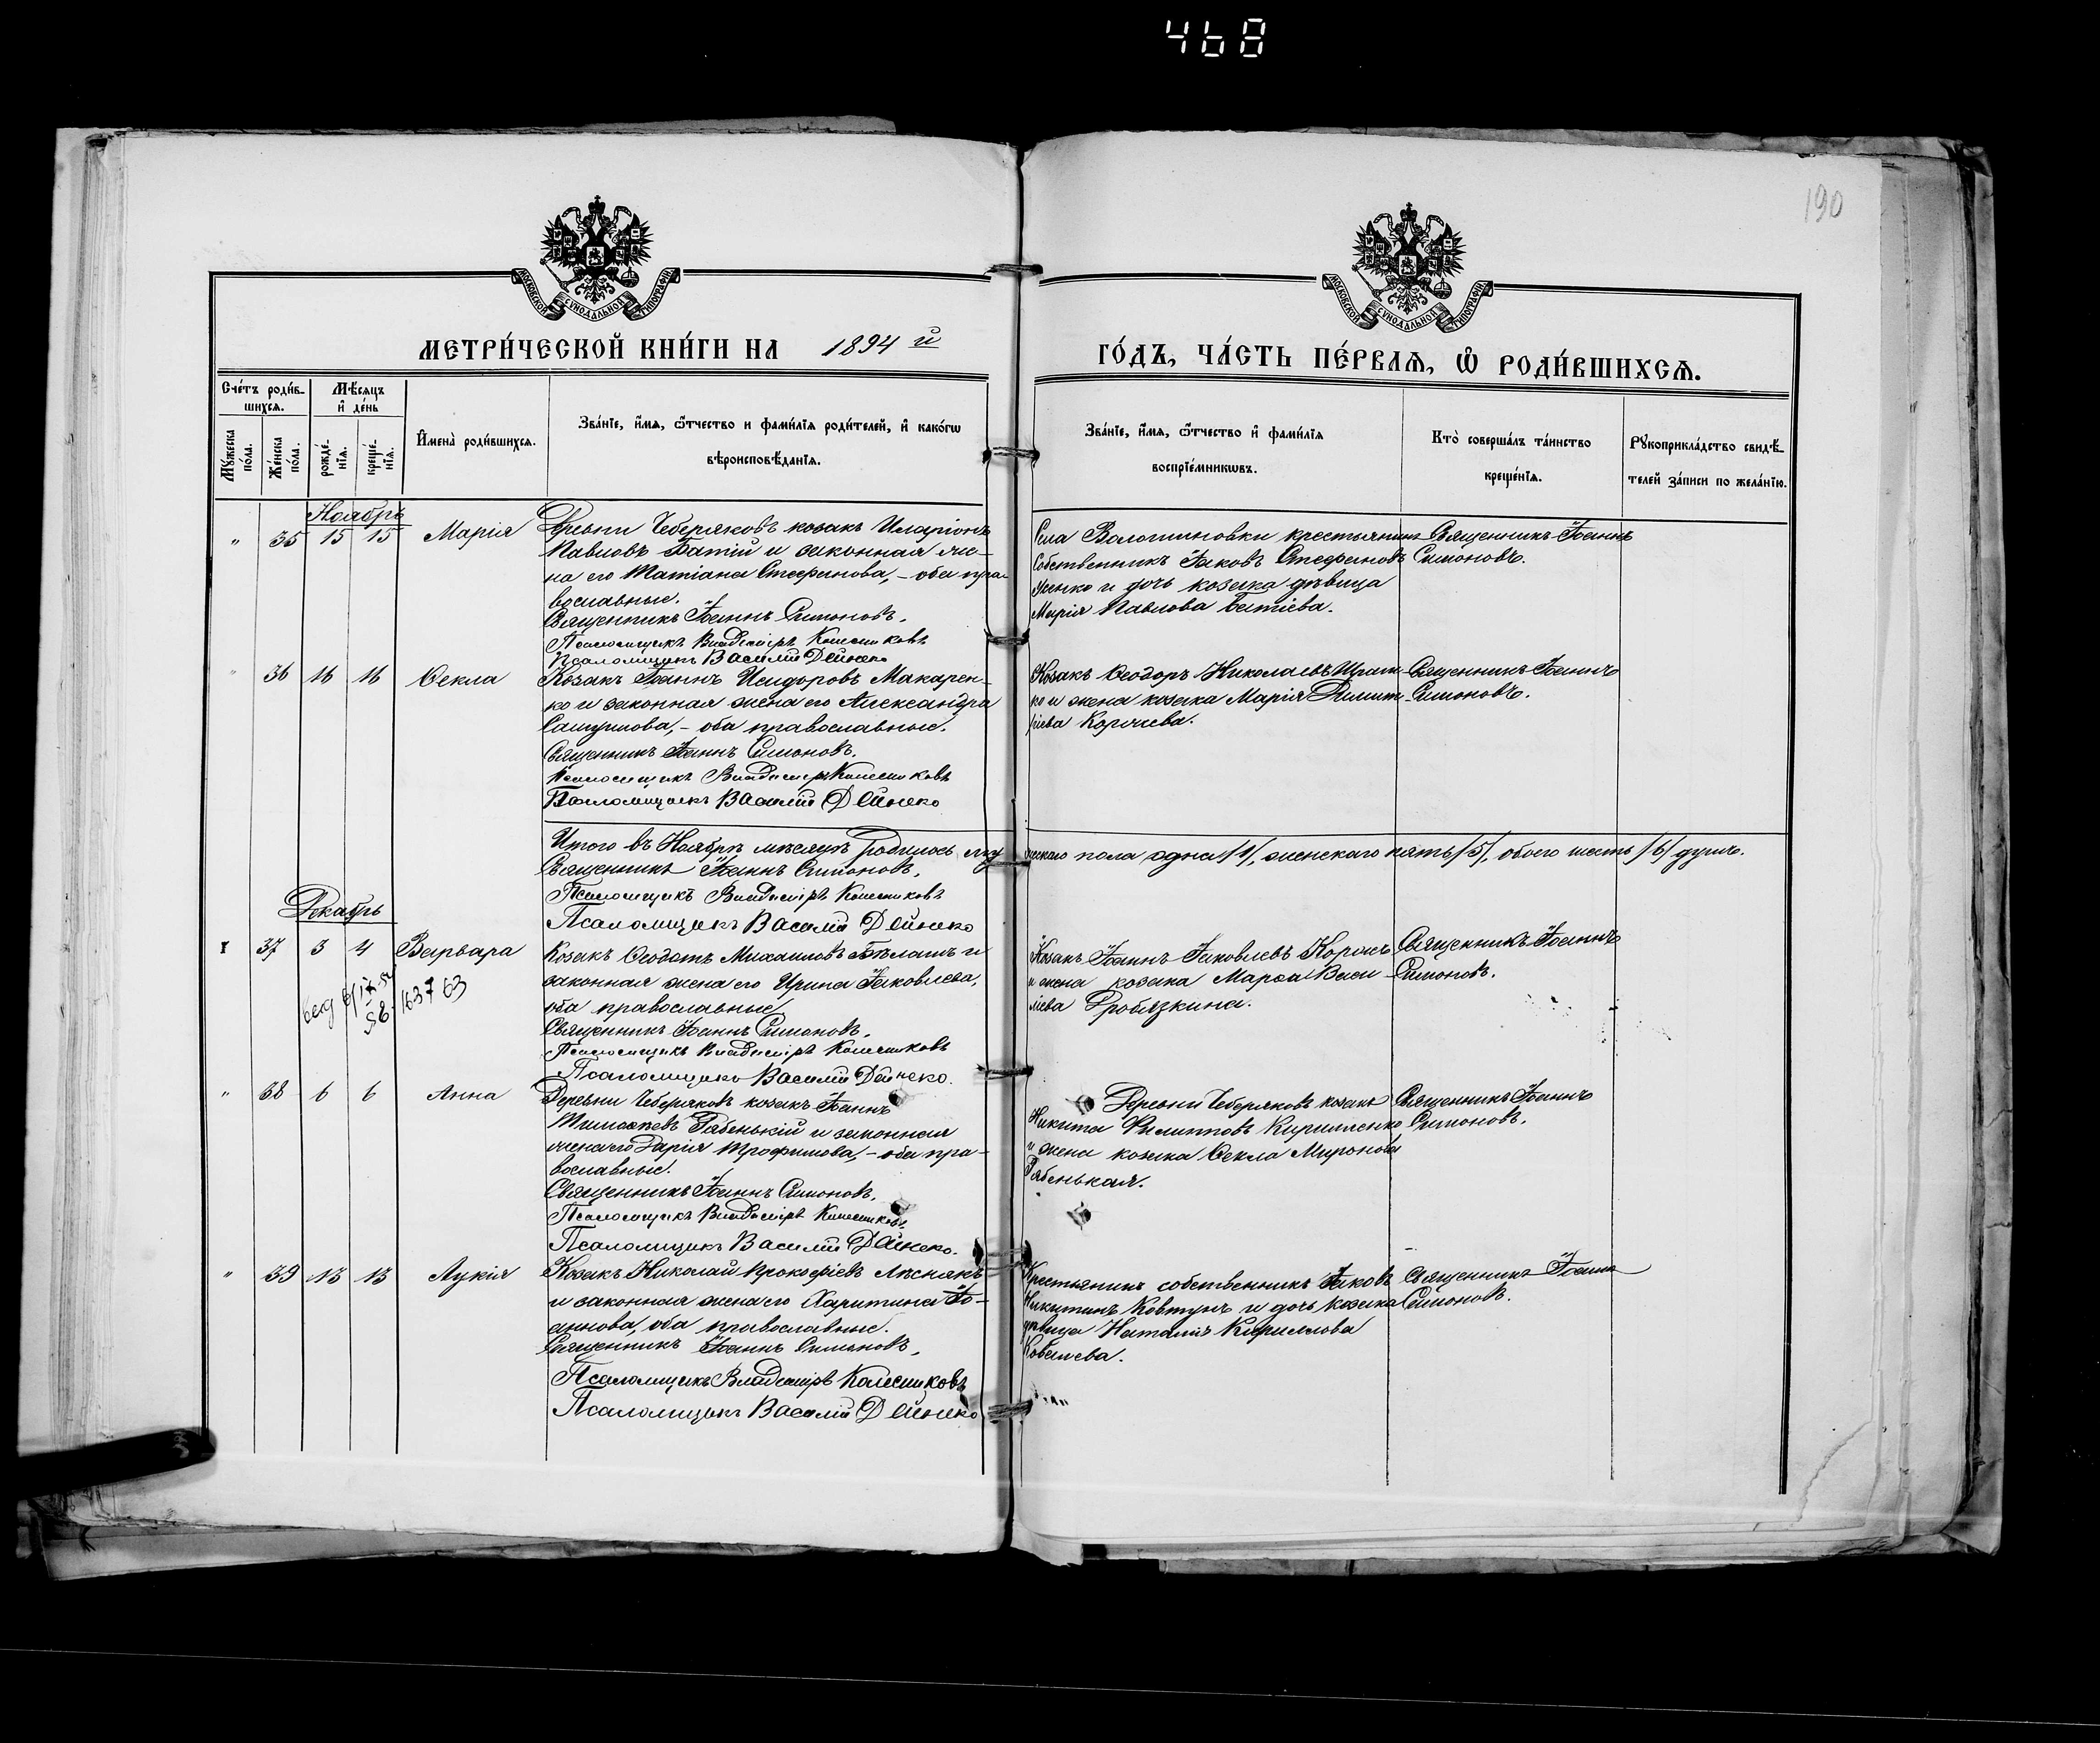 468
190
МОСКОВСКОЙ СѴНОДАЛЬНОЙ ТИПОГРАФІИ
МОСКОВСКОЙ СѴНОДАЛЬНОЙ ТИПОГРАФІИ
МЕТРИ́ЧЕСКОЙ КНИ́ГИ НА 1894 й
ГО́ДЪ, ЧА́СТЬ ПЕ́РВАЯ, Ѿ РОДИ́ВШИХСЯ.
Сче́тъ роди́в-
шихся.
Мѣ́сяцъ
и҆ де́нь
Мꙋ́жеска
по́ла.
Же́нска
по́ла.
рожде́-
нїя.
креще́-
нїя.
И҆мена̀ роди́вшихся.
Зва́нїе, и҆́мя, ѻ҆́тчество и фами́лїя роди́телей, и҆ како́гѡ
вѣроисповѣ́данїя.
Зва́нїе, и҆́мя, ѻ҆́тчество и҆ фами́лїя
воспрїе́мникѡвъ.
Кто̀ соверша́лъ та́инство
креще́нїя.
Рꙋкоприкла́дство свидѣ́-
телей за́писи по жела́нїю.
Ноябрь
" 35 15 15 Марія
Деревни Чеберяковъ козакъ Иларіонъ
Павловъ Батій и законная же-
на его Татіана Стефанова, - оба пра-
вославные.
Священникъ Іоаннъ Симоновъ.
Псаломщикъ Владиміръ Колесниковъ
Псаломщикъ Василій Дейнеко
Села Волошиновки крестьянинъ
собственникъ Іаковъ Стефановъ
и дочь козака дѣвица
Марія Павлова Батіева.
Священникъ Іоаннъ
Симоновъ.
" 36 16 16 Ѳекла
Козакъ Іоаннъ Исидоровъ Макарен-
ко и законная жена его Александра
Самуилова, - оба православные.
Священникъ Іоаннъ Симоновъ.
Псаломщикъ Владиміръ Колесниковъ
Псаломщикъ Василій Дейнеко
Козакъ Ѳеодоръ Николаевъ
ко и жена козака Марія Димит-
ріева
Священникъ Іоаннъ
Симоновъ.
Итого въ Ноябрѣ мѣсяцѣ родилось му
жескаго пола одна /1/, женскаго пять /5/, обоего шесть /6/ душъ.
Священникъ Іоаннъ Симоновъ.
Псаломщикъ Владиміръ Колесниковъ
Псаломщикъ Василій Дейнеко
Декабрь
37 3 4 Варвара
163763
Козакъ Ѳеодотъ Михаиловъ Бѣлашъ и
законная жена его Ирина Іаковлева,
оба православные
Священникъ Іоаннъ Симоновъ.
Псаломщикъ Владиміръ Колесниковъ
Псаломщикъ Василій Дейнеко.
Козакъ Іоаннъ Іаковлевъ
и жена козака Марѳа Васи-
лева Дробязкина.
Священникъ Іоаннъ
Симоновъ.
" 68 6 6 Анна
Деревни Чеберяковъ козакъ Іоаннъ
Тимоѳеевъ Рабенькій и законная
жена его Дарія Трофимова, - оба пра-
вославные.
Священникъ Іоаннъ Симоновъ.
Псаломщикъ Владиміръ Колесниковъ.
Псаломщикъ Василій Дейнеко.
Деревни Чеберяковъ козакъ
Никита Филипповъ Кириленко
и жена козака Ѳекла Миронова
Рабенькая.
Священникъ Іоаннъ
Симоновъ.
" 39 13 13 Лукія
Козакъ Николай Прокофіевъ Лѣснякъ
и законная жена его Харитина Іо-
аннова, оба православные.
Священникъ Іоаннъ Симоновъ.
Псаломщикъ Владиміръ Колесниковъ
Псаломщикъ Василій Дейнеко
Крестьянинъ собственникъ Іаковъ
Никитинъ Ковтунъ и дочь козака
дѣвица Наталія Кириллова
Ковалева.
Священникъ Іоаннъ
Симоновъ.